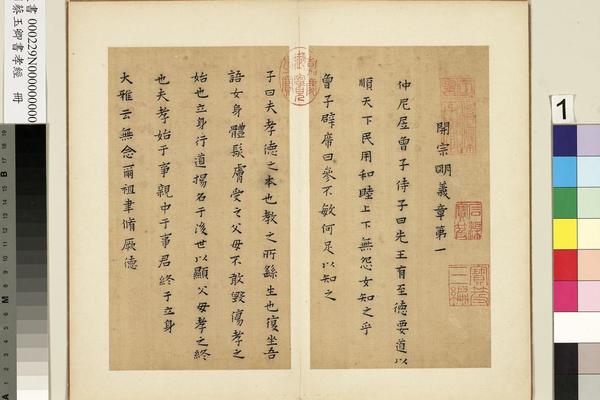 開宗明義章第一
仲尼凥曾子侍子曰先王有至德要道以
順天下民用和睦上下無怨女知之乎
曾子辟席曰參不敏何足以知之
子曰夫孝德之本也教之所繇生也復坐吾
語女身體髮膚受之父母不敢毀傷孝之
始也立身行道揚名于後世以顯父母孝之終
也夫孝始于事親中于事君終于立身
大雅云無念爾祖聿脩厥德
書 000229N000000000
蔡玉卿書孝經 冊
1